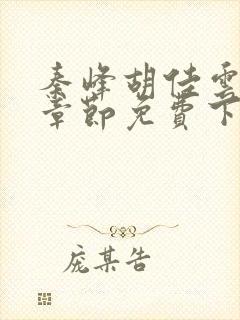 秦峰胡佳雲
章節免費下
庞某告